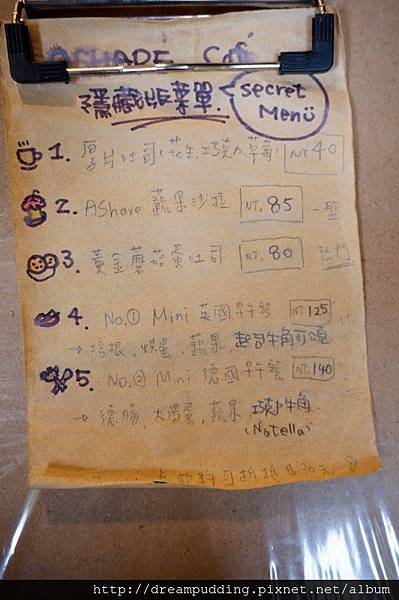 AShare Café
隱藏版菜單
Secret
Menü
1. 厚片吐司(花生,巧克力,草莓) NT 40
2. AShare 蔬果沙拉 NT. 85 一盤
3. 黃金蘑菇蛋吐司 NT. 80 熱門
4. No.① Mini 英國早午餐 NT 125
→ 培根,烘蛋,蔬果,起司牛角可頌
5. No.② Mini 德國早午餐 NT. 140
→ 德腸,太陽蛋,蔬果,巧克力牛角
(Notella)
飲料可折抵
http://dreampudding.pixnet.net/album